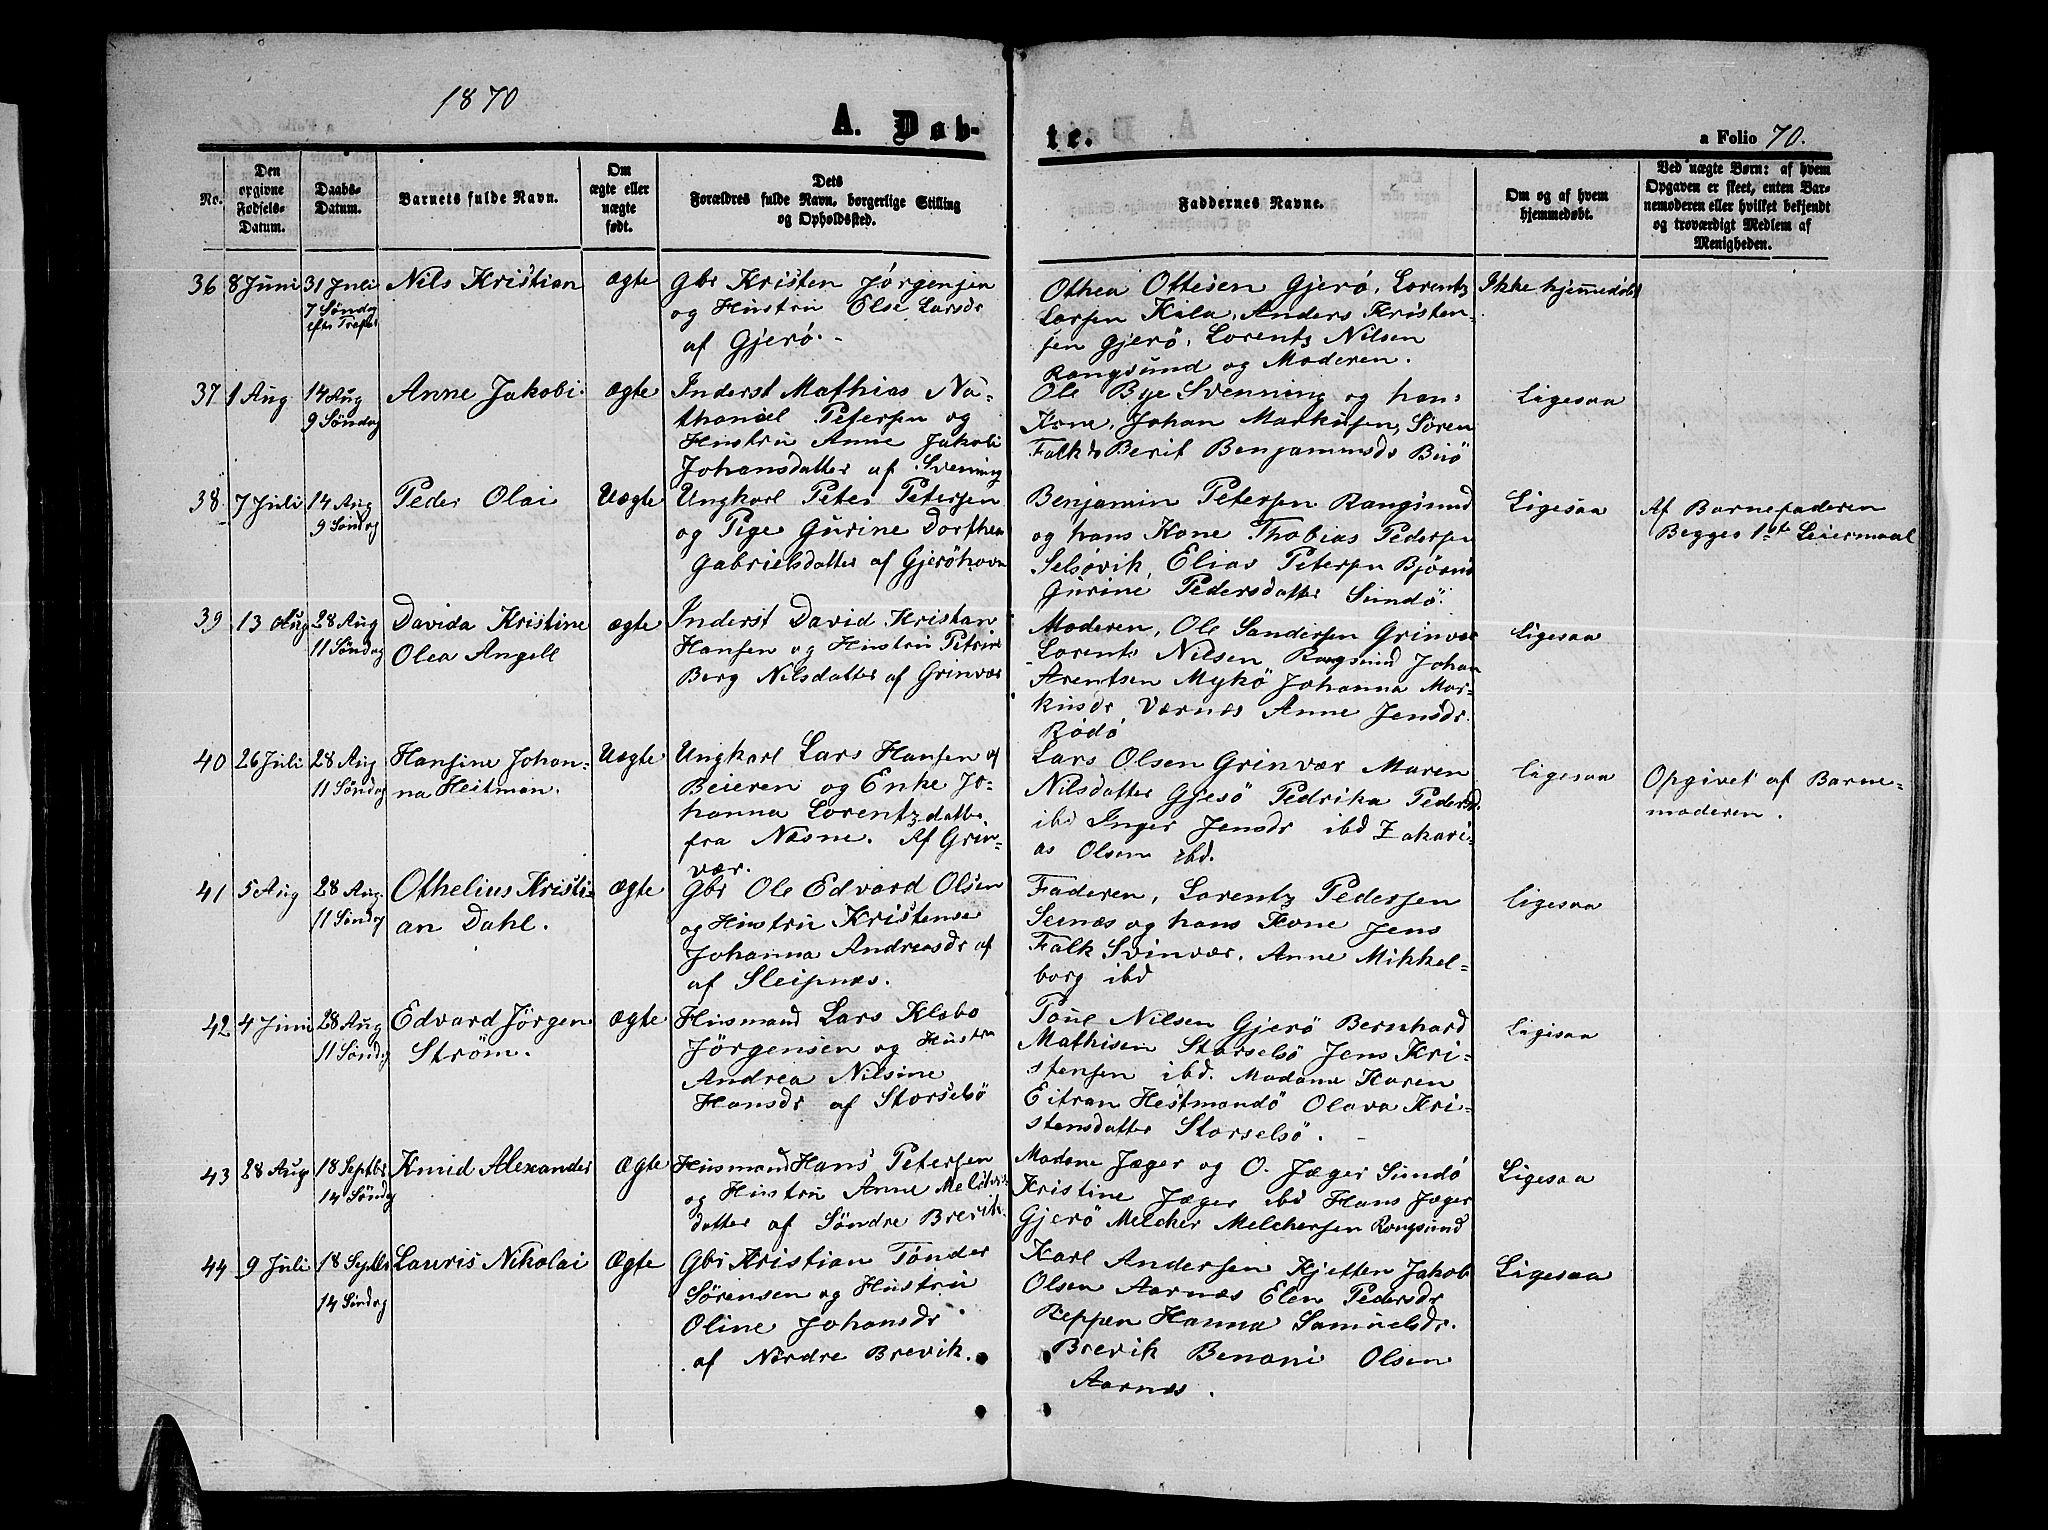 1870
A. Døb-
te.
a Folio 70.
No.
Den opgivne Fødsels-Datum.
Daabs-Datum.
Barnets fulde Navn.
Om ægte eller uægte født.
Dets Forældres fulde Navn, borgerlige Stilling og Opholdssted.
Faddernes Navne.
Om og af hvem hjemmedøbt.
Ved uægte Børn: af hvem Opgaven er skeet, enten Barnemoderen eller hvilket bekjendt og troværdigt Medlem af Menigheden.
36 8 Juni 31 Juli
7 Søndag
efter Trefol
Nils Kristian
Ægte
Gbr Kristen Jørgensen
og Hustru Else Larsdr
af Gjerø.
Othea Ottesen Gjerø, Lorentz
Larsen Kila, Anders Kristen-
sen Gjerø, Lorentz Nilsen
Rangsund og Moderen.
Ikke hjemmedøbt
37 1 Aug 14 Aug
9 Søndag
Anne Jakobi
Ægte
Inderst Mathias Na-
thaniel Petersen og
Hustru Anne Jakobi
Johansdatter af Svenning
Ole Bye Svenning og hans
Kone, Johan Markusen, Søren
Falk & Berit Benjaminsdr Birø
Ligesaa
38 7 Juli 14 Aug
9 Søndag
Peder Olai
Uægte
Ungkarl Peter Petersen
og Pige Gurine Dorthea
Gabrielsdatter af Gjerøhavn
Benjamin Petersen Rangsund
og hans Kone Thobias Pedersen
Selsøvik, Elias Petersen
Gurine Pedersdatter Sundø.
Ligesaa
Af Barnefaderen
Begges 1ste Leiermaal
39 13 Aug 28 Aug
11 Søndag
Davida Kristine
Olea Angell
Ægte
Inderst David Kristan
Hansen og Hustru Petrine
Berg Nilsdatter af Grinvær
Moderen, Ole Sandersen Grinvær
Lorents Nilsen Rangsund Johan
Arentsen Mykø Johanna Mar-
kusdr Værnæs Anne Jensdr.
Rødø
Ligesaa
40 26 Juli 28 Aug
11 Søndag
Hansine Johan-
na Heitman.
Uægte
Ungkarl Lars Hansen af
Beieren og Enke Jo-
hanna Lorentzdatter
fra Næsne. Af Grin-
vær.
Lars Olsen Grinvær Maren
Nilsdatter Gjesø Pedrika Pedersd.
ibd Inger Jensdr ibd Zakari-
as Olsen ibd.
Ligesaa
Opgivet af Barne-
moderen.
41 5 Aug 28 Aug.
11 Søndag
Othelius Kristi-
an Dahl.
Ægte
Gbr Ole Edvard Olsen
og Hustru Kristense
Johanna Andreasdr af
af Sleipnæs.
Faderen, Lorentz Pedersen
Sernæs og hans Kone Jens
Falk Svinvær. Anne Mikkel-
borg ibd
Ligesaa
42 4 Juni 28 Aug
11 Søndag
Edvard Jørgen
Strøm.
Ægte
Husmand Lars Klæbo
Jørgensen og Hustru
Andrea Nilsine
Hansdr af Storselsø
Poul Nilsen Gjerø Bernhard
Mathisen Storselsø Jens Kri-
stensen ibd. Madame Karen
Eitran Hestmandø Olava Kri-
stensdatter Storselsø.
Ligesaa
43 28 Aug 18 Septbr
14 Søndag
Knud Alexander
Ægte
Husmand Hans Petersen
og Hustru Anne
datter af Søndre Brevik.
Madame Jæger og O. Jæger Sundø
Kristine Jæger ibd Hans Jæger
Gjerø Melcher Melchersen Rangsund
Ligesaa
44 9 Juli 18 Septbr
14 Søndag
Lauris Nikolai
Ægte
Gbr Kristian Tønder
Sørensen og Hustru
Oline Johansdr
af Nordre Brevik.
Karl Andersen Kjetten Jakob
Olsen Aarnæs Elen Pedersdr
Reppen Hanna Samuelsdr.
Brevik Benoni Olsen
Aarnæs.
Ligesaa